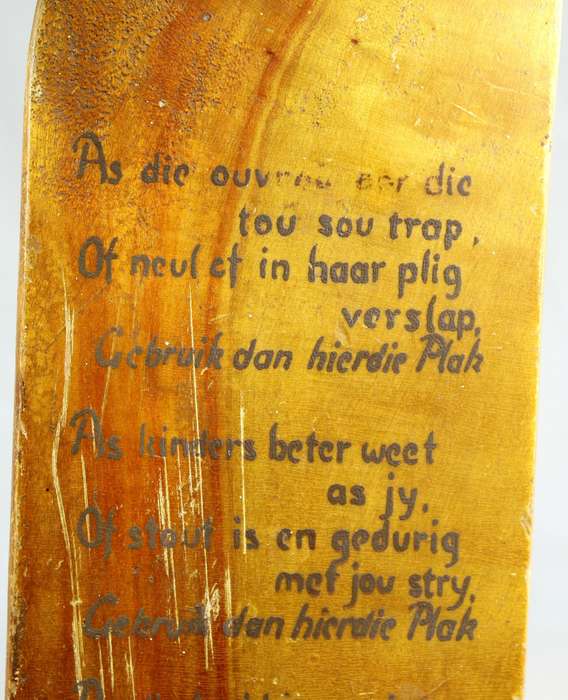 As die ouvrou oor die
tou sou trap,
Of neul of in haar plig
verslap,
Gebruik dan hierdie Plak
As kinders beter weet
as jy,
Of stout is en gedurig
met jou stry,
Gebruik dan hierdie Plak